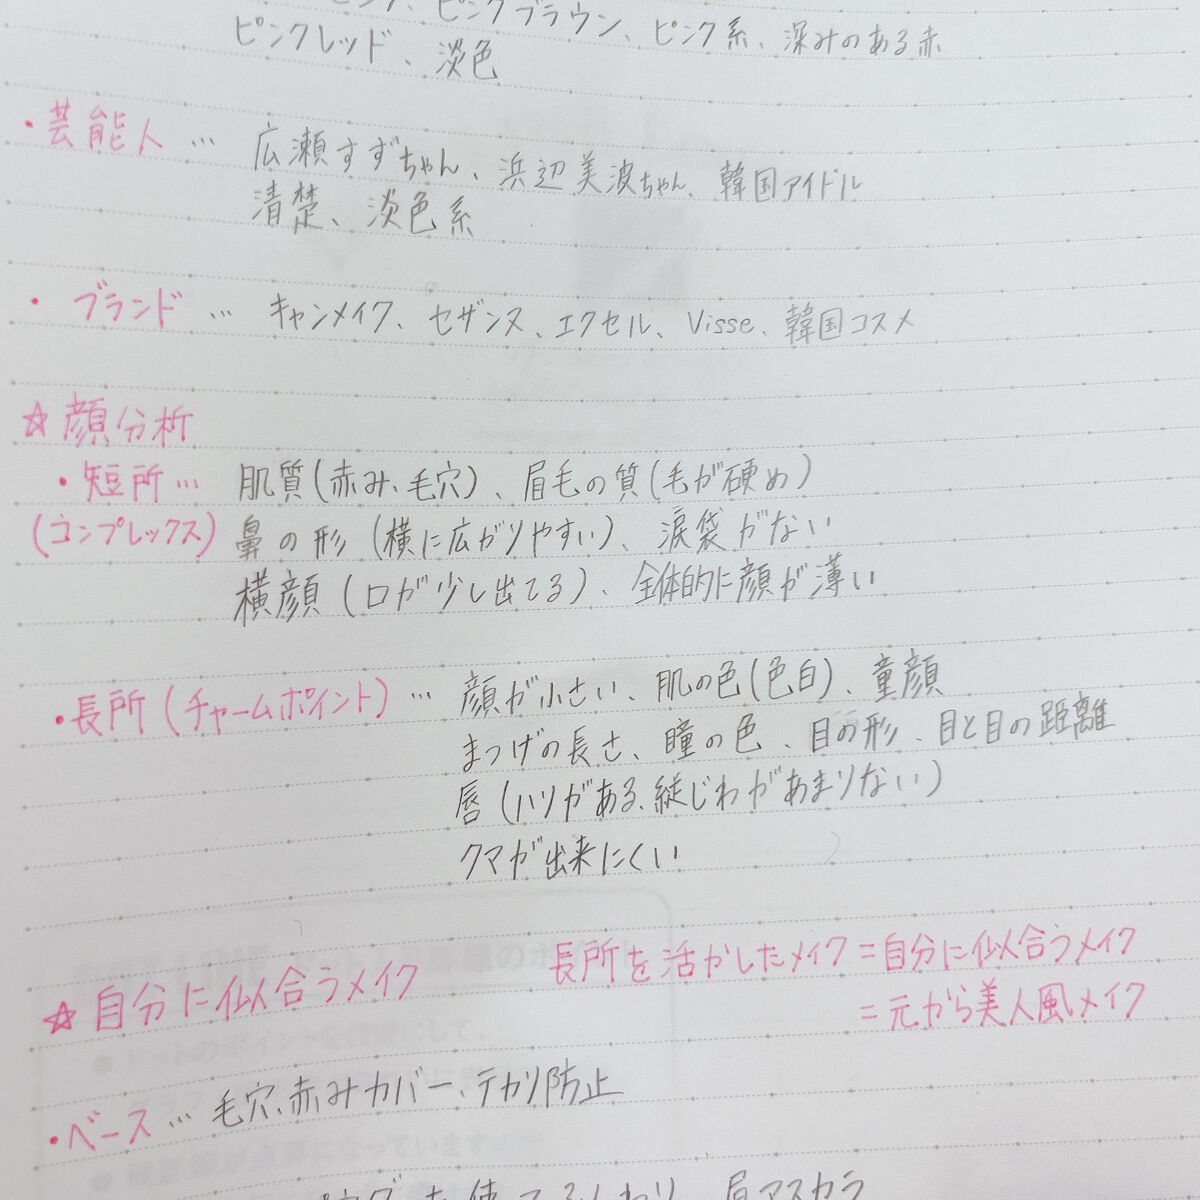 ピンク、ピンクブラウン、ピンク系、深みのある赤
ピンクレッド、淡色
・芸能人 … 広瀬すずちゃん、浜辺美波ちゃん、韓国アイドル
清楚、淡色系
・ブランド … キャンメイク、セザンヌ、エクセル、Visse、韓国コスメ
☆顔分析
・短所… 肌質(赤み、毛穴)、眉毛の質(毛が硬め)
(コンプレックス) 鼻の形(横に広がりやすい)、涙袋がない
横顔(口が少し出てる)、全体的に顔が薄い
・長所(チャームポイント)… 顔が小さい、肌の色(色白)、童顔
まつげの長さ、瞳の色、目の形、目と目の距離
唇(ハリがある、縦じわがあまりない)
クマが出来にくい
長所を活かしたメイク=自分に似合うメイク
☆自分に似合うメイク
=元から美人風メイク
・ベース… 毛穴、赤みカバー、テカリ防止
を使ってふんわり、眉マスカラ